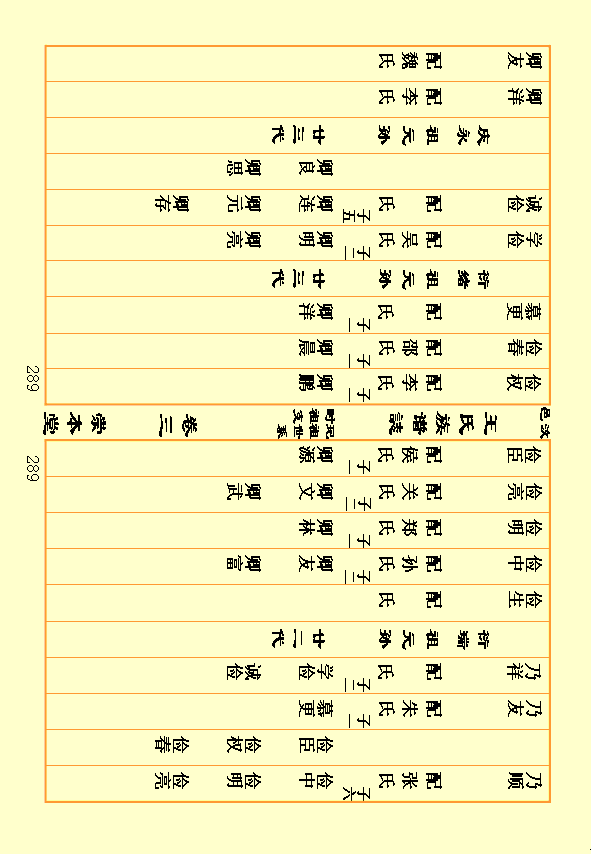 乃顺 配张氏 子六 俭中 俭明 俭亮
俭臣 俭权 俭春
乃友 配朱氏 子一 慕更
乃祥 配 氏 子二 学俭 诚俭
哲瑞祖元孙 廿二代
俭生 配 氏
俭中 配孙氏 子二 卿友 卿富
俭明 配郑氏 子一 卿林
俭亮 配关氏 子二 卿文 卿武
俭臣 配侯氏 子一 卿源
289
汶邑 王氏族谱誌 卷三 崇本堂
289
俭权 配李氏 子一 卿鹏
俭春 配邵氏 子一 卿晨
慕更 配 氏 子一 卿洋
哲绪祖元孙 廿三代
学俭 配吴氏 子二 卿明 卿亮
诚俭 配 氏 子五 卿连 卿元 卿存
卿良 卿思
庆永祖元孙 廿三代
卿洋 配李氏
卿友 配魏氏